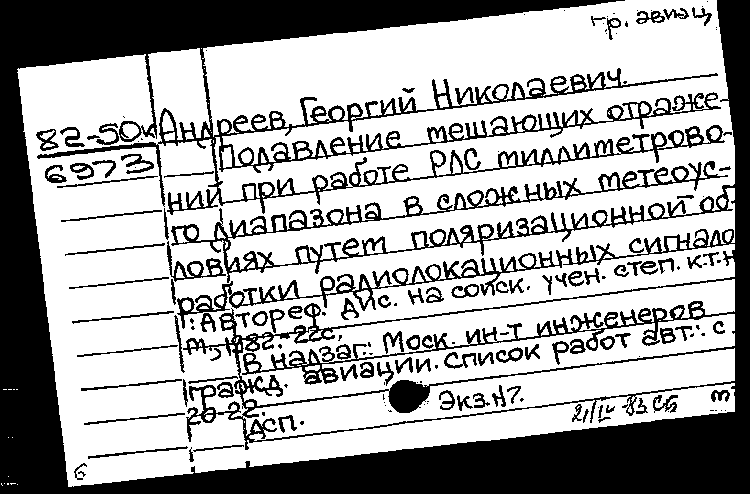 гр. авиац,
82-50к Андреев, Георгий Николаевич.
6973 Подавление мешающих отраже-
ний при работе РЛС миллиметрово-
го диапазона в сложных метеоус-
ловиях путем поляризационной об-
работки радиолокационных сигнало
: Автореф. дис. на соиск. учен. степ. к.т.н
М., 1982.-22с.
В надзаг.: Моск. ин-т инженеров
гражд. авиации. Список работ авт.: с.
20-22.
ДСП. Экз.№7.
21/IV-83 СБ
6